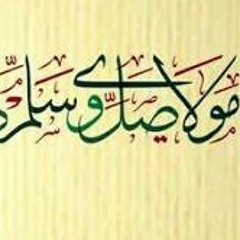 مولاي صلّ وسلّم